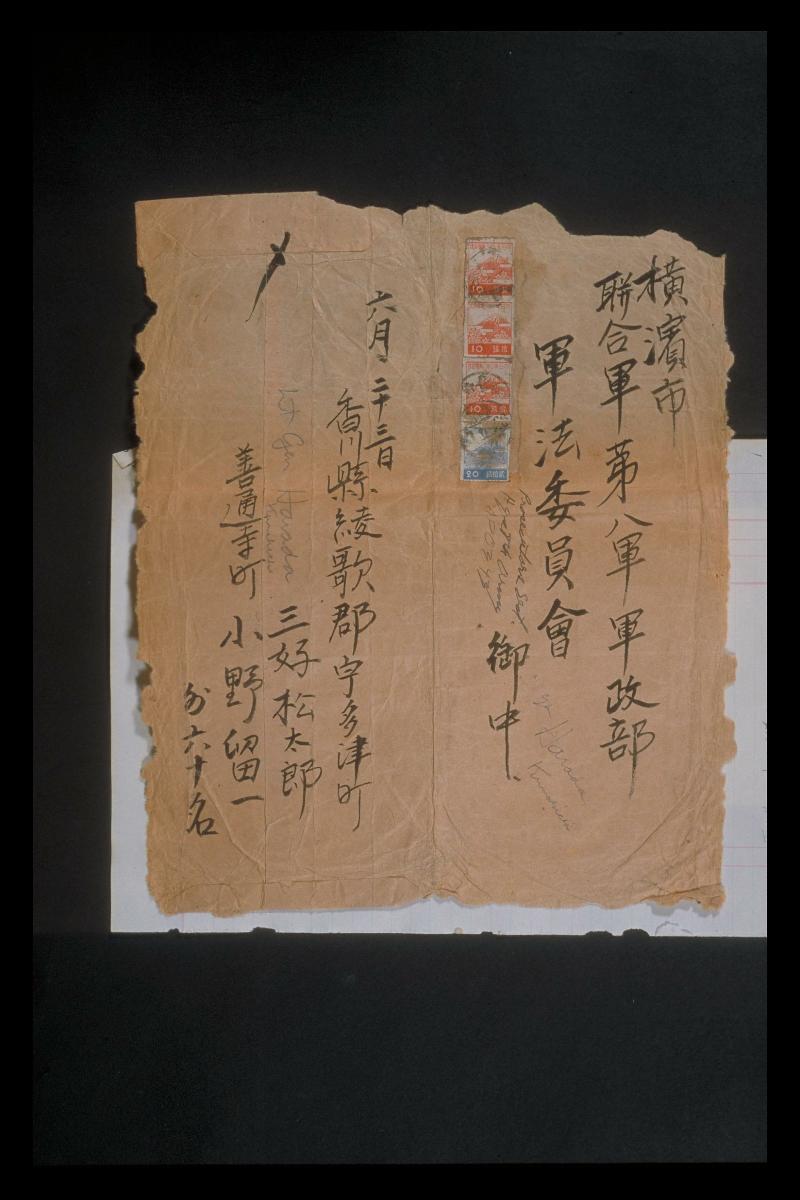 橫濱市
聯合軍第八軍軍政部
軍法委員會
御中
10
10
10
20
Hq 8th Army
Harada
六月二十三日
香川縣綾歌郡宇多津町
三好松太郎
Lt Gen Harada
善通寺町
小野留一
外六十名